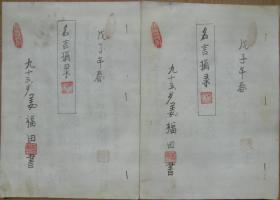 戊子年春
名言摘录
九十五岁姜福田书
戊子年春
名言摘录
九十五岁姜福田书